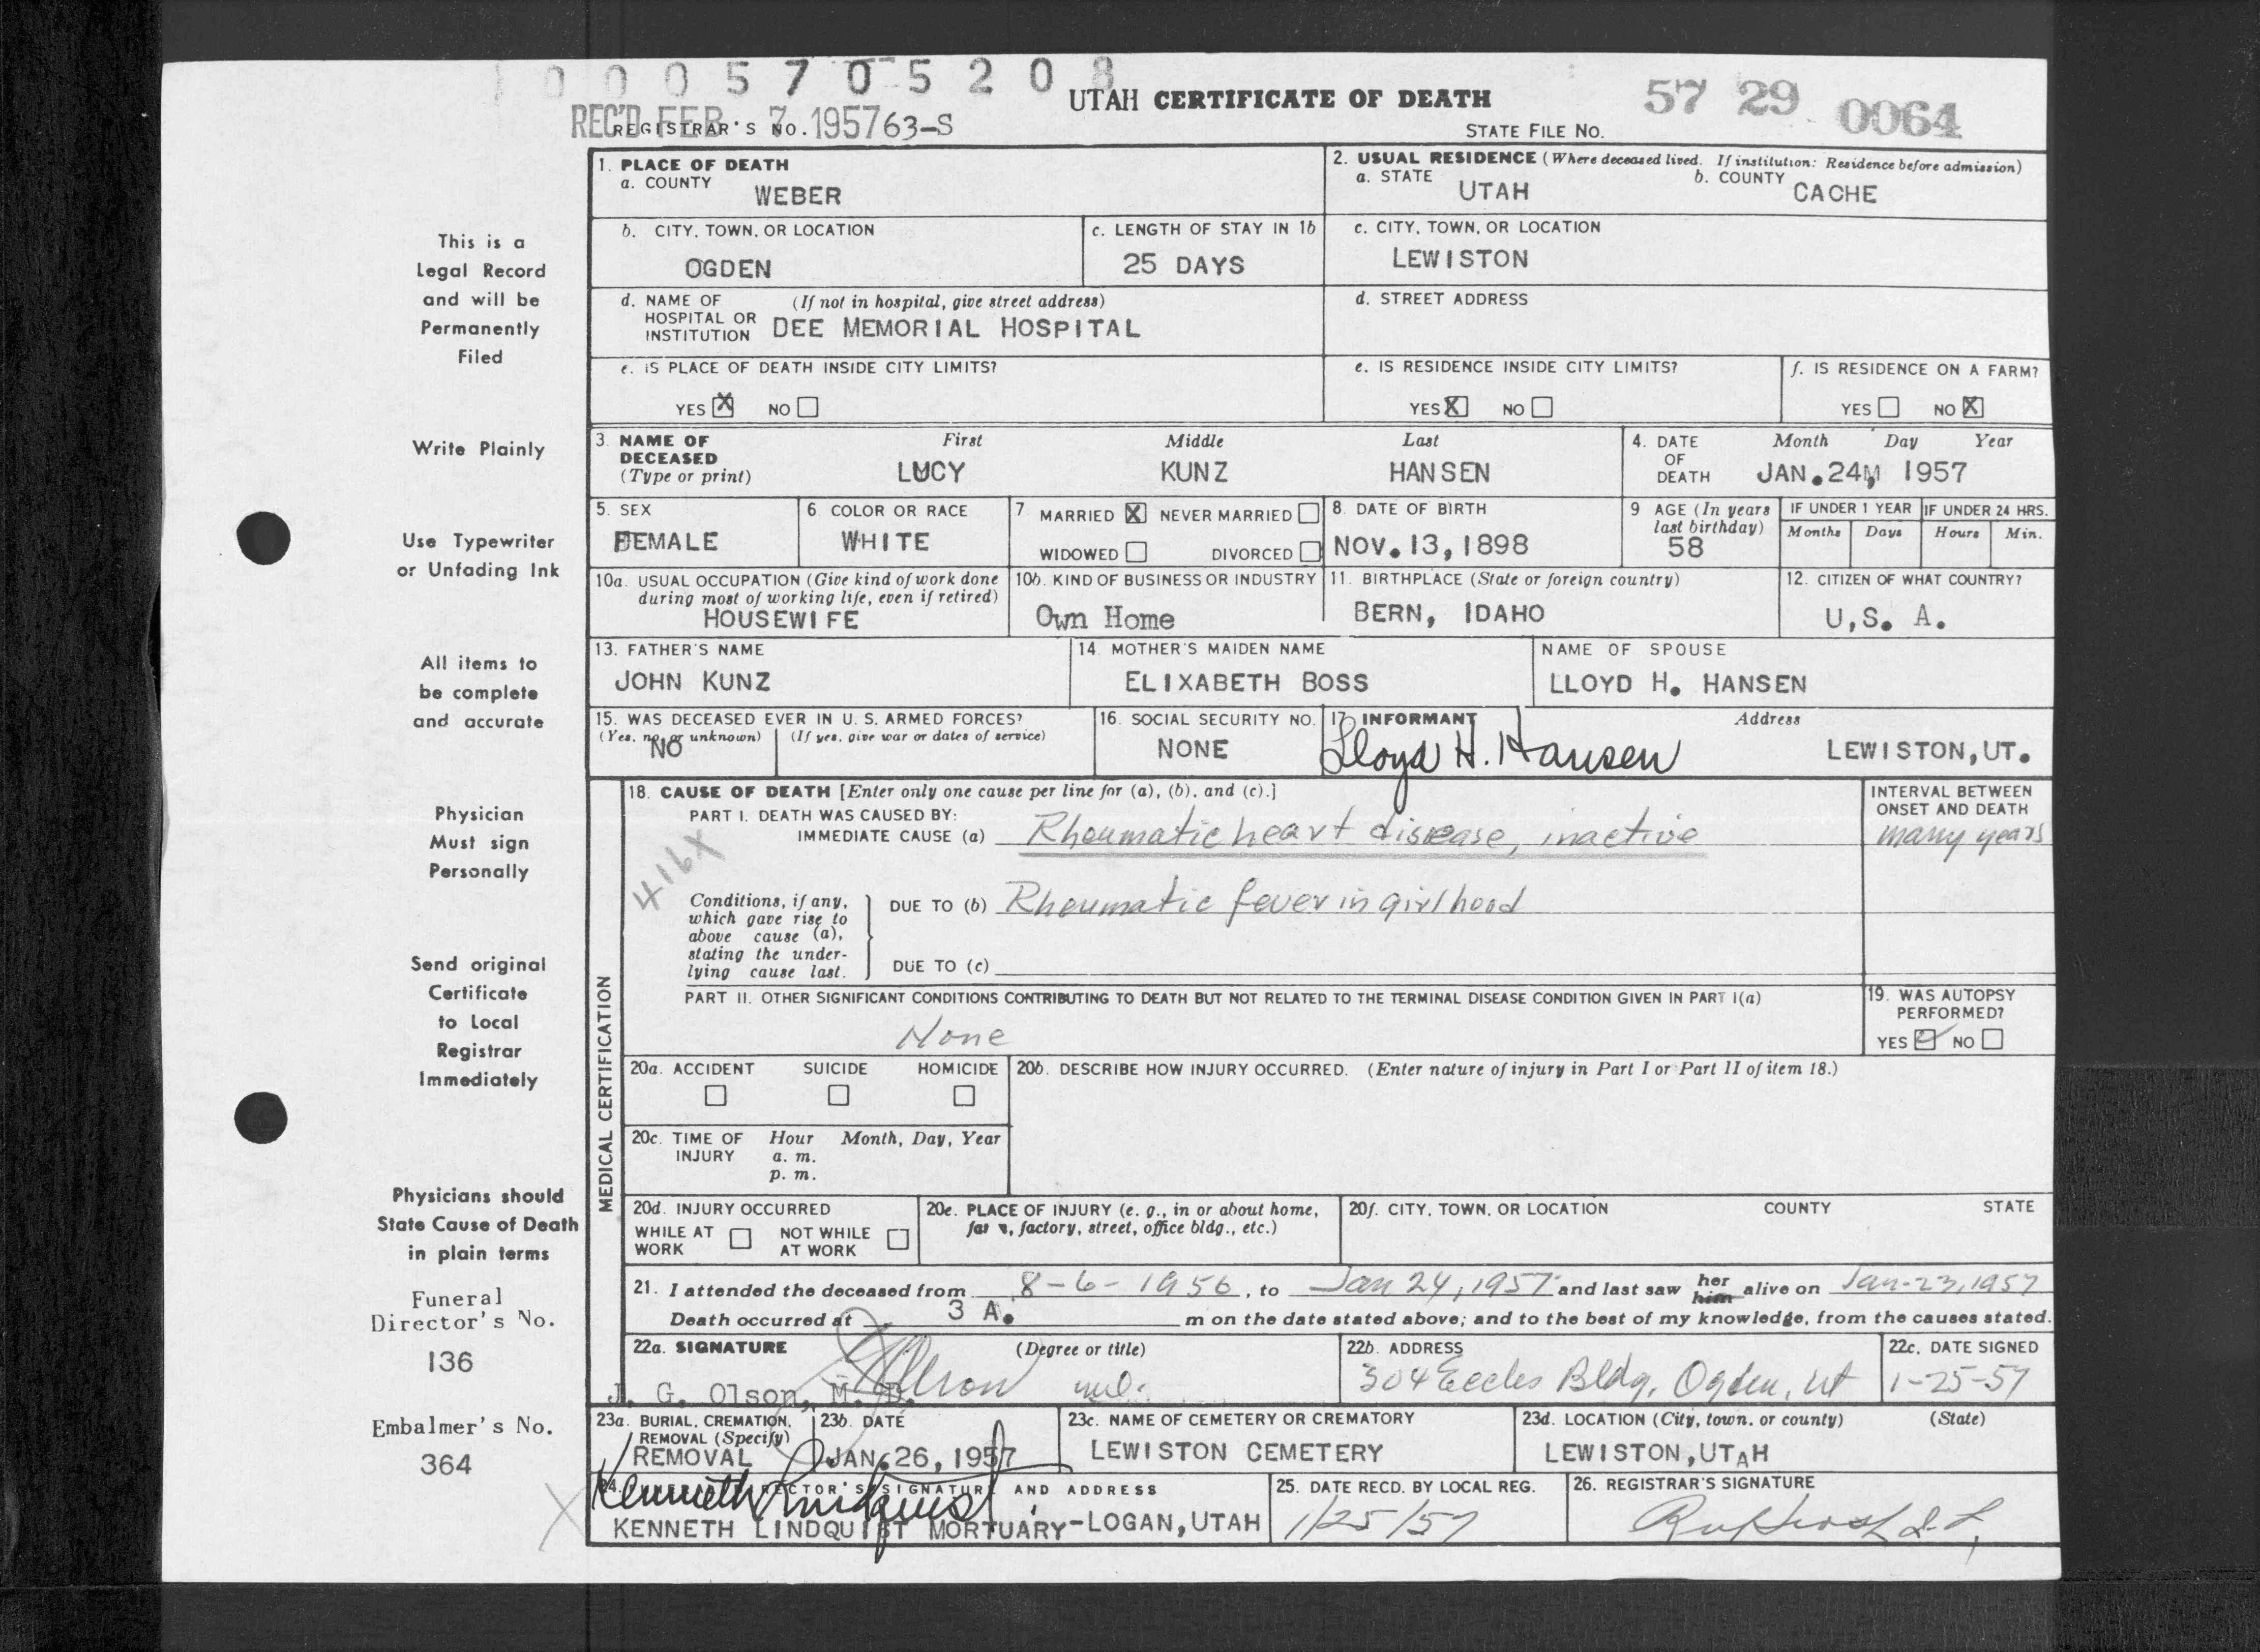 0005705208
UTAH CERTIFICATE OF DEATH
57 29 0064
REC'D FEB 7 1957
REGISTRAR'S NO. 63-S
STATE FILE NO.
1. PLACE OF DEATH
a. COUNTY
WEBER
2. USUAL RESIDENCE (Where deceased lived. If institution: Residence before admission)
a. STATE UTAH b. COUNTY CACHE
b. CITY, TOWN, OR LOCATION
OGDEN
c. LENGTH OF STAY IN 1b
25 DAYS
c. CITY, TOWN, OR LOCATION
LEWISTON
d. NAME OF HOSPITAL OR INSTITUTION (If not in hospital, give street address)
DEE MEMORIAL HOSPITAL
d. STREET ADDRESS
e. IS PLACE OF DEATH INSIDE CITY LIMITS?
YES X NO
e. IS RESIDENCE INSIDE CITY LIMITS?
YES X NO
f. IS RESIDENCE ON A FARM?
YES NO X
3. NAME OF DECEASED (Type or print)
First Middle Last
LUCY KUNZ HANSEN
4. DATE OF DEATH Month Day Year
JAN. 24, 1957
5. SEX
FEMALE
6. COLOR OR RACE
WHITE
7 MARRIED X NEVER MARRIED
WIDOWED DIVORCED
8. DATE OF BIRTH
NOV. 13, 1898
9 AGE (In years last birthday)
58
IF UNDER 1 YEAR
Months Days
IF UNDER 24 HRS.
Hours Min.
10a. USUAL OCCUPATION (Give kind of work done during most of working life, even if retired)
HOUSEWIFE
10b. KIND OF BUSINESS OR INDUSTRY
Own Home
11. BIRTHPLACE (State or foreign country)
BERN, IDAHO
12. CITIZEN OF WHAT COUNTRY?
U.S. A.
13. FATHER'S NAME
JOHN KUNZ
14. MOTHER'S MAIDEN NAME
ELIXABETH BOSS
NAME OF SPOUSE
LLOYD H. HANSEN
15. WAS DECEASED EVER IN U. S. ARMED FORCES?
(Yes, no, or unknown) (If yes, give war or dates of service)
NO
16. SOCIAL SECURITY NO.
NONE
17. INFORMANT Address
Lloyd H. Hansen LEWISTON, UT.
MEDICAL CERTIFICATION
18. CAUSE OF DEATH [Enter only one cause per line for (a), (b), and (c).]
INTERVAL BETWEEN ONSET AND DEATH
PART I. DEATH WAS CAUSED BY:
IMMEDIATE CAUSE (a) Rheumatic heart disease, inactive
many years
416X
Conditions, if any, which gave rise to above cause (a), stating the underlying cause last.
DUE TO (b) Rheumatic fever in girlhood
DUE TO (c)
PART II. OTHER SIGNIFICANT CONDITIONS CONTRIBUTING TO DEATH BUT NOT RELATED TO THE TERMINAL DISEASE CONDITION GIVEN IN PART I(a)
None
19. WAS AUTOPSY PERFORMED?
YES NO
20a. ACCIDENT SUICIDE HOMICIDE
20b. DESCRIBE HOW INJURY OCCURRED. (Enter nature of injury in Part I or Part II of item 18.)
20c. TIME OF INJURY Hour Month, Day, Year
a. m.
p. m.
20d. INJURY OCCURRED
WHILE AT WORK NOT WHILE AT WORK
20e. PLACE OF INJURY (e. g., in or about home, farm, factory, street, office bldg., etc.)
20f. CITY, TOWN, OR LOCATION COUNTY STATE
21. I attended the deceased from 8-6-1956, to Jan 24, 1957 and last saw her him alive on Jan-23, 1957
Death occurred at 3 A. m on the date stated above; and to the best of my knowledge, from the causes stated.
22a. SIGNATURE (Degree or title)
J. G. Olson, M. D.
22b. ADDRESS
304 Eccles Bldg, Ogden, Ut
22c. DATE SIGNED
1-25-57
23a. BURIAL, CREMATION, REMOVAL (Specify)
REMOVAL
23b. DATE
JAN. 26, 1957
23c. NAME OF CEMETERY OR CREMATORY
LEWISTON CEMETERY
23d. LOCATION (City, town, or county) (State)
LEWISTON, UTAH
24. DIRECTOR'S SIGNATURE AND ADDRESS
Kenneth Lindquist
KENNETH LINDQUIST MORTUARY-LOGAN, UTAH
25. DATE RECD. BY LOCAL REG.
1/25/57
26. REGISTRAR'S SIGNATURE
This is a
Legal Record
and will be
Permanently
Filed
Write Plainly
Use Typewriter
or Unfading Ink
All items to
be complete
and accurate
Physician
Must sign
Personally
Send original
Certificate
to Local
Registrar
Immediately
Physicians should
State Cause of Death
in plain terms
Funeral
Director's No.
136
Embalmer's No.
364